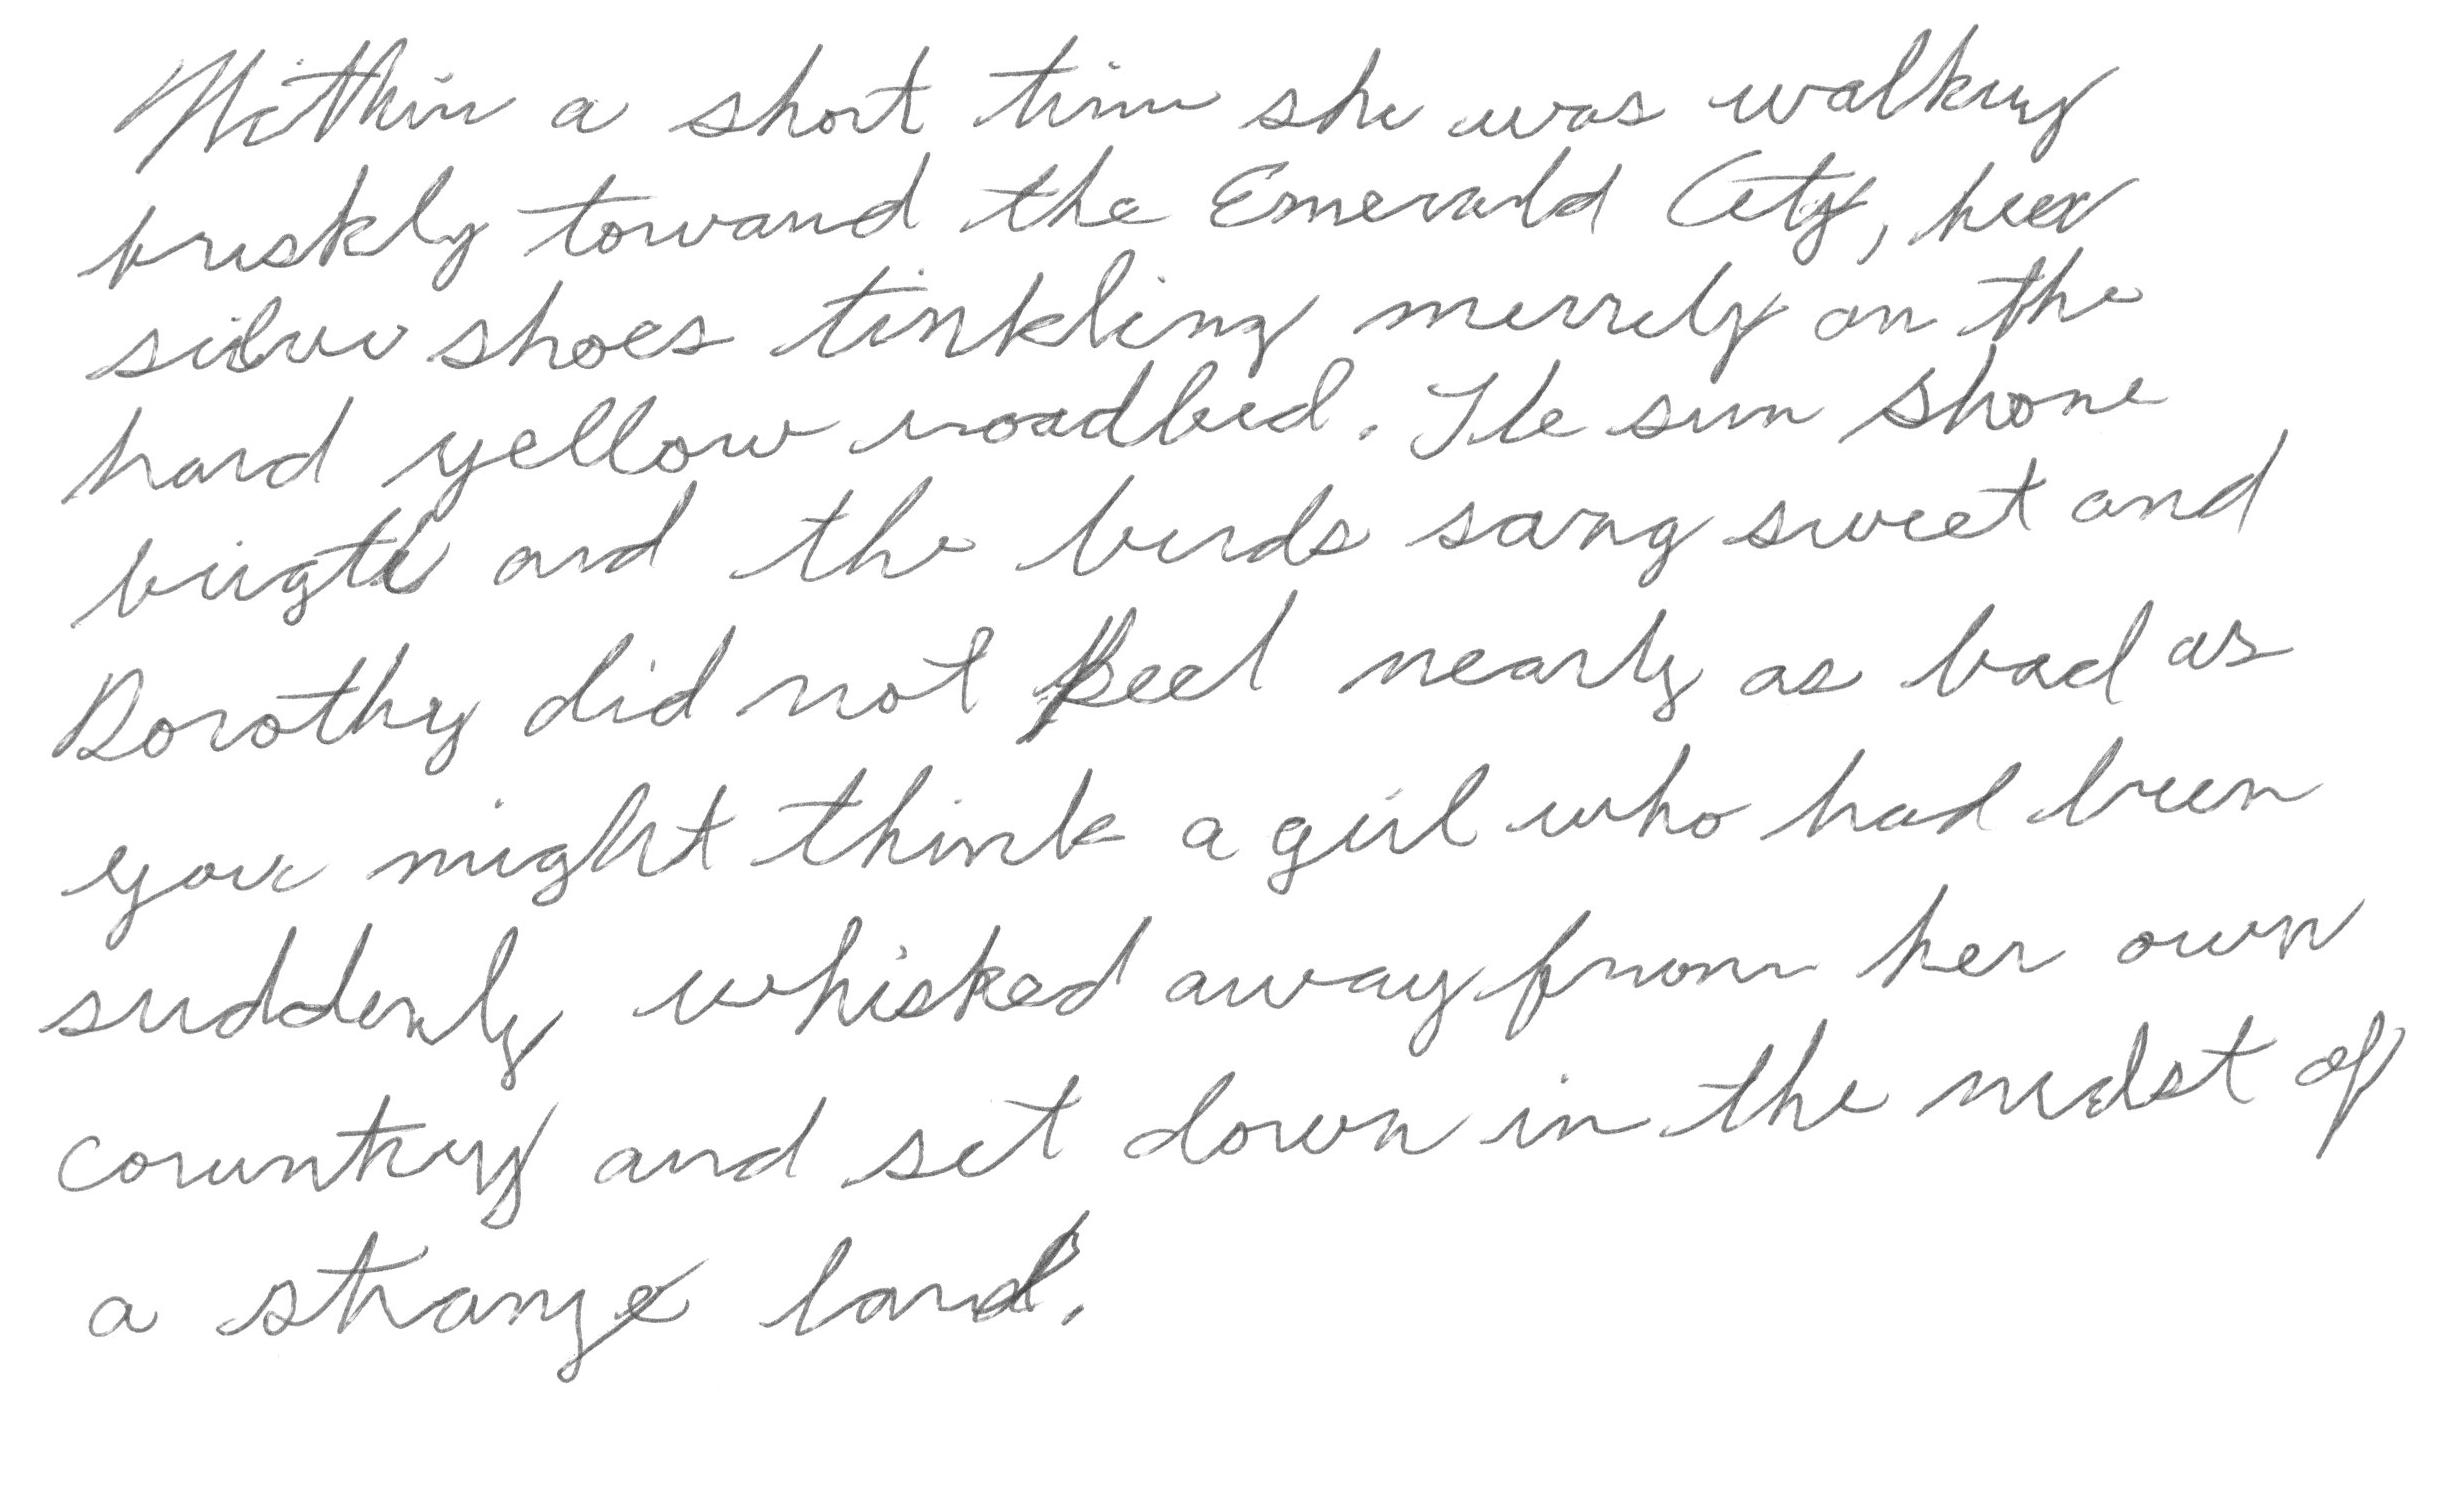 Within a short time she was walking
briskly toward the Emerald City, her
silver shoes tinkling merrily on the
hard yellow roadbed. The sun shone
bright and the birds sang sweet and
Dorothy did not feel nearly as bad as
you might think a girl who had been
suddenly whisked away from her own
country and set down in the midst of
a strange land.